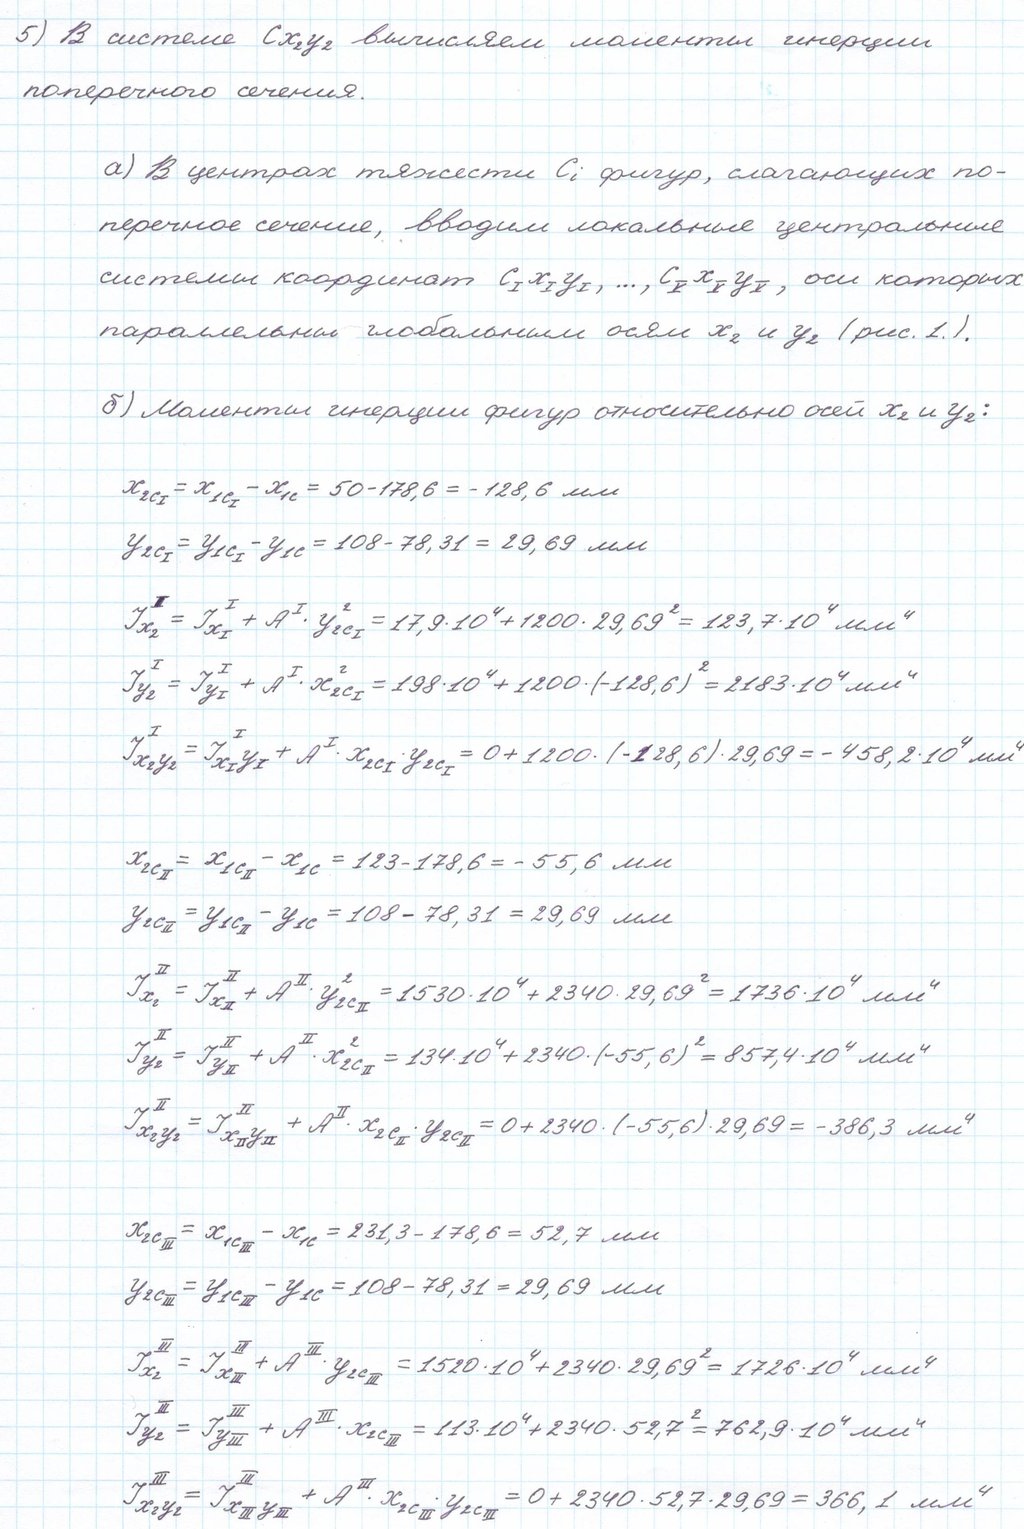 5) В системе Cx₂y₂ вычисляем моменты инерции
поперечного сечения.
а) В центрах тяжести Cᵢ фигур, слагающих по-
перечное сечение, вводим локальные центральные
системы координат C_I x_I y_I, ..., C_V x_V y_V, оси которых
параллельны глобальным осям x₂ и y₂ (рис. 1.).
б) Моменты инерции фигур относительно осей x₂ и y₂:
x_{2C_I} = x_{1C_I} - x_{1C} = 50-178,6 = -128,6 мм
y_{2C_I} = y_{1C_I} - y_{1C} = 108-78,31 = 29,69 мм
J_{x₂}^I = J_{x_I}^I + A^I · y_{2C_I}^2 = 17,9·10⁴ + 1200·29,69² = 123,7·10⁴ мм⁴
J_{y₂}^I = J_{y_I}^I + A^I · x_{2C_I}^2 = 198·10⁴ + 1200·(-128,6)² = 2183·10⁴ мм⁴
J_{x₂y₂}^I = J_{x_I y_I}^I + A^I · x_{2C_I} · y_{2C_I} = 0 + 1200·(-128,6)·29,69 = -458,2·10⁴ мм⁴
x_{2C_II} = x_{1C_II} - x_{1C} = 123-178,6 = -55,6 мм
y_{2C_II} = y_{1C_II} - y_{1C} = 108-78,31 = 29,69 мм
J_{x₂}^II = J_{x_II}^II + A^II · y_{2C_II}^2 = 1530·10⁴ + 2340·29,69² = 1736·10⁴ мм⁴
J_{y₂}^II = J_{y_II}^II + A^II · x_{2C_II}^2 = 134·10⁴ + 2340·(-55,6)² = 857,4·10⁴ мм⁴
J_{x₂y₂}^II = J_{x_II y_II}^II + A^II · x_{2C_II} · y_{2C_II} = 0 + 2340·(-55,6)·29,69 = -386,3 мм⁴
x_{2C_III} = x_{1C_III} - x_{1C} = 231,3-178,6 = 52,7 мм
y_{2C_III} = y_{1C_III} - y_{1C} = 108-78,31 = 29,69 мм
J_{x₂}^III = J_{x_III}^III + A^III · y_{2C_III} = 1520·10⁴ + 2340·29,69² = 1726·10⁴ мм⁴
J_{y₂}^III = J_{y_III}^III + A^III · x_{2C_III} = 113·10⁴ + 2340·52,7² = 762,9·10⁴ мм⁴
J_{x₂y₂}^III = J_{x_III y_III}^III + A^III · x_{2C_III} · y_{2C_III} = 0 + 2340·52,7·29,69 = 366,1 мм⁴